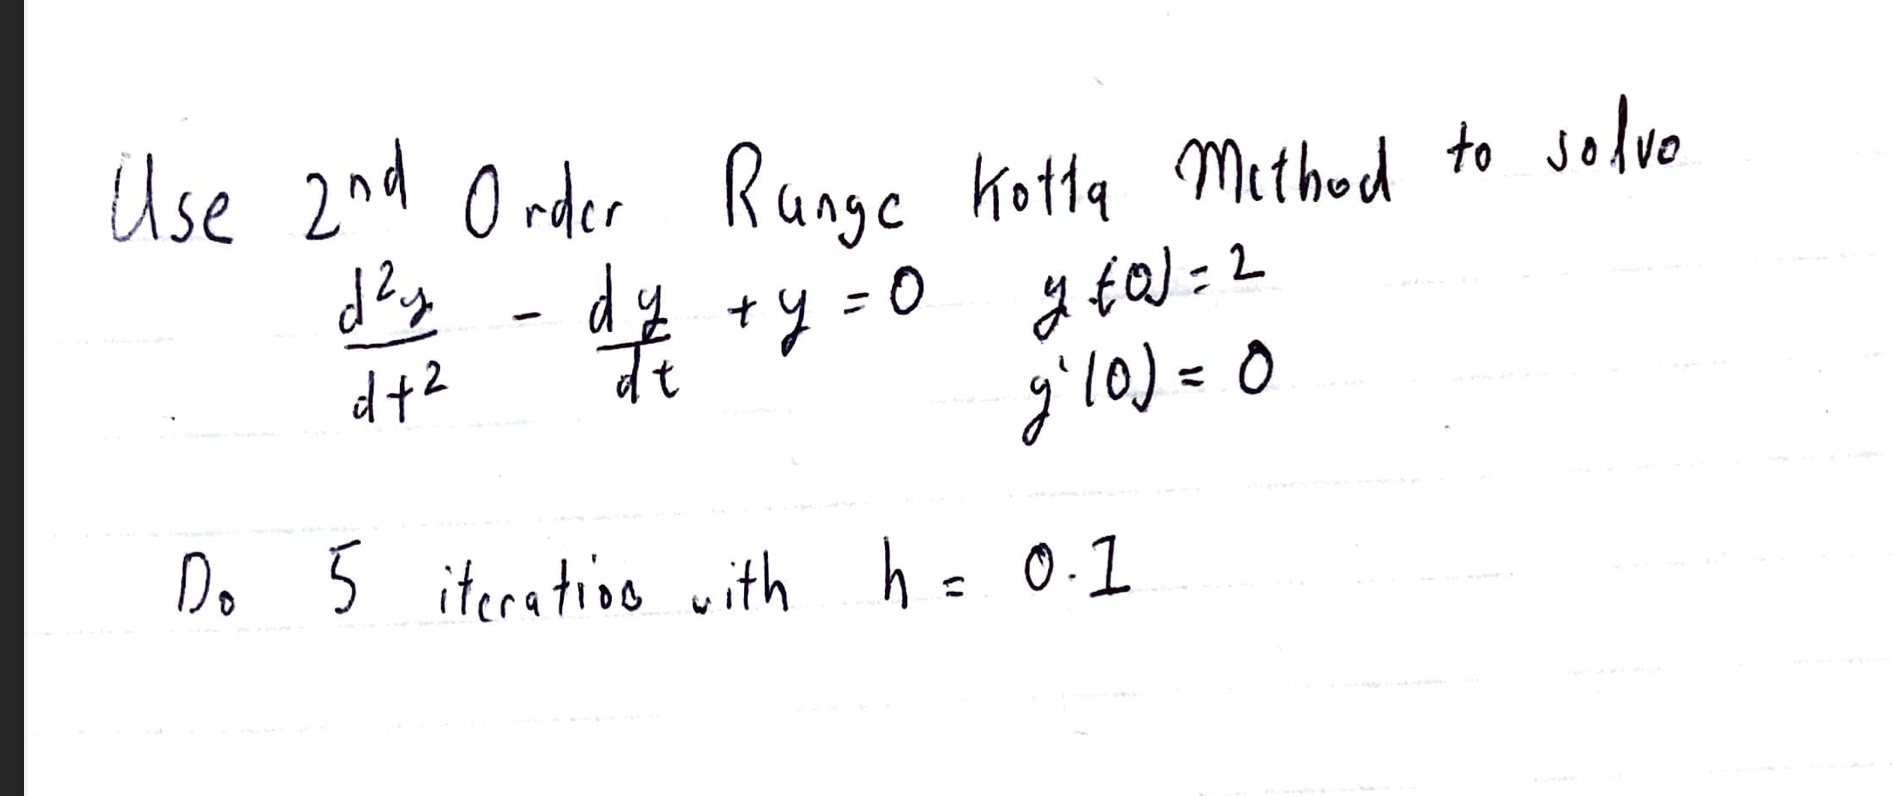 Use 2nd Order Runge Kotta Method to solve
d²y/dt² - dy/dt + y = 0 y(0) = 2
y'(0) = 0
Do 5 iteration with h = 0.1